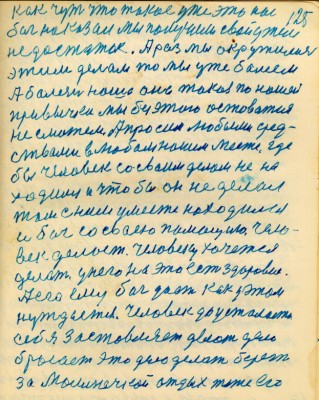 125
как чуть что такое уже это нас
бог наказал мы получили свой этот
недостаток. А раз мы окружились
этим делом то мы уже болеем
А болезнь наша она такая по нашей
привычки мы без этого остоватся
не сможем. Мы просим любыми сред-
ствами в любом нашим месте. где
бы человек со своим делом не на
ходился и что бы он не делал
там с ним уместе находился
и бог со своею помощью. чело-
век делает. Человеку хочется
делать. у него на это есть здоровие.
А сего ему бог дает как в этом
нуждается. Человек до усталости
себя заставляет делать дело
бросает это дело делать берет
за мылишечкой отдых тоже его